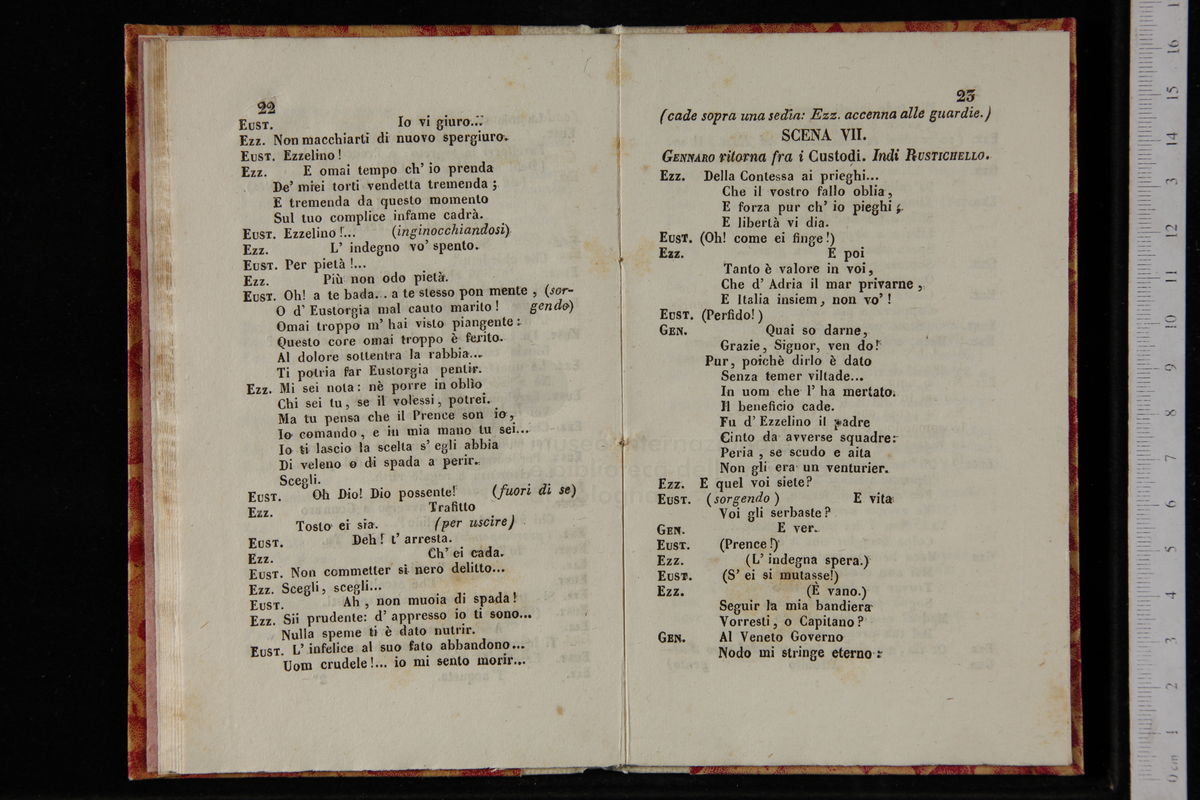 22
EUST. Io vi giuro...
Ezz. Non macchiarti di nuovo spergiuro.
EUST. Ezzelino!
Ezz. E omai tempo ch' io prenda
De' miei torti vendetta tremenda;
E tremenda da questo momento
Sul tuo complice infame cadrà.
EUST. Ezzelino!... (inginocchiandosi)
Ezz. L' indegno vo' spento.
EUST. Per pietà!...
Ezz. Più non odo pietà.
EUST. Oh! a te bada... a te stesso pon mente, (sor-
O d' Eustorgia mal cauto marito! gendo)
Omai troppo m' hai visto piangente:
Questo core omai troppo è ferito.
Al dolore sottentra la rabbia...
Ti potria far Eustorgia pentir.
Ezz. Mi sei nota: nè porre in oblìo
Chi sei tu, se il volessi, potrei.
Ma tu pensa che il Prence son io,
Io comando, e in mia mano tu sei...
Io ti lascio la scelta s' egli abbia
Di veleno o di spada a perir.
Scegli.
EUST. Oh Dio! Dio possente! (fuori di se)
Ezz. Trafitto
Tosto ei sia. (per uscire)
EUST. Deh! t' arresta.
Ezz. Ch' ei cada.
EUST. Non commetter sì nero delitto...
Ezz. Scegli, scegli...
EUST. Ah, non muoia di spada!
Ezz. Sii prudente: d' appresso io ti sono...
Nulla speme ti è dato nutrir.
EUST. L' infelice al suo fato abbandono...
Uom crudele!... io mi sento morir...
23
(cade sopra una sedia: Ezz. accenna alle guardie.)
SCENA VII.
GENNARO ritorna fra i Custodi. Indi RUSTICHELLO.
Ezz. Della Contessa ai prieghi...
Che il vostro fallo oblia,
E forza pur ch' io pieghi;
E libertà vi dia.
EUST. (Oh! come ei finge!)
Ezz. E poi
Tanto è valore in voi,
Che d' Adria il mar privarne,
E Italia insiem, non vo'!
EUST. (Perfido!)
GEN. Quai so darne,
Grazie, Signor, ven do!
Pur, poichè dirlo è dato
Senza temer viltade...
In uom che l' ha mertato
Il beneficio cade.
Fu d' Ezzelino il padre
Cinto da avverse squadre:
Peria, se scudo e aita
Non gli era un venturier.
Ezz. E quel voi siete?
EUST. (sorgendo) E vita
Voi gli serbaste?
GEN. E ver.
EUST. (Prence!)
Ezz. (L' indegna spera.)
EUST. (S' ei si mutasse!)
Ezz. (È vano.)
Seguir la mia bandiera
Vorresti, o Capitano?
GEN. Al Veneto Governo
Nodo mi stringe eterno: